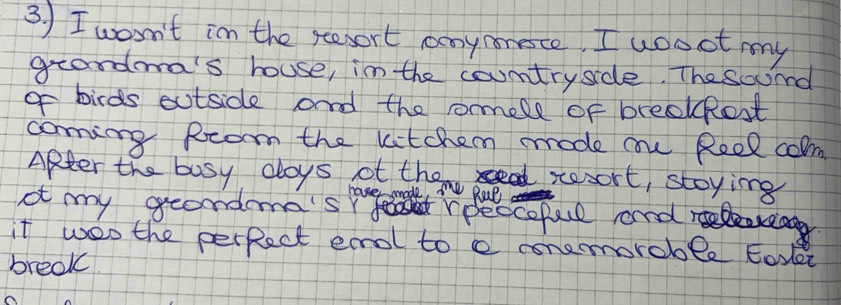 3.) I wasn't in the resort anymore. I was at my
grandma's house, in the countryside. The sound
of birds outside and the smell of breakfast
coming from the kitchen made me feel calm.
After the busy days at the resort, staying
at my grandma's have made me feel peaceful and relaxing
it was the perfect end to a memorable Easter
break